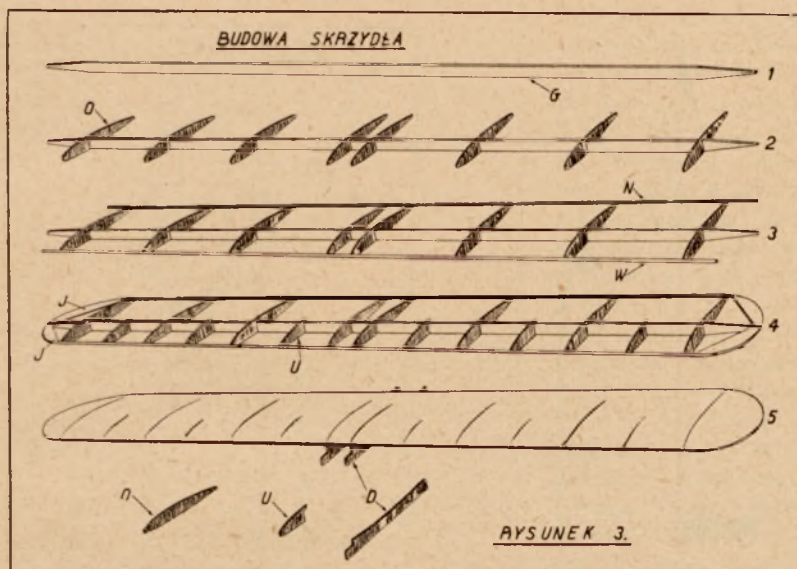 BUDOWA SKRZYDŁA
1
G
O
2
N
3
W
J
4
J
U
5
O
U
D
RYSUNEK 3.